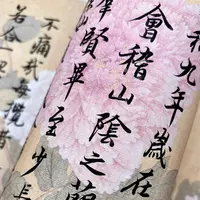 和九年歲在
會稽山陰之蘭
羣賢畢至少長
不痛哉每攬昔
若合一